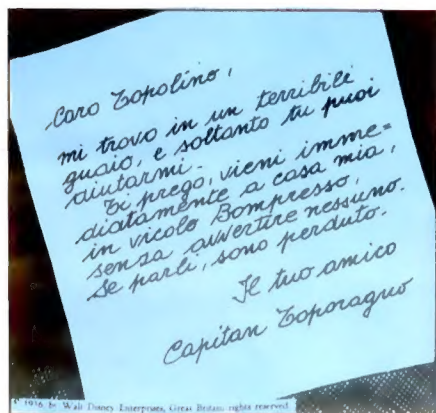 Caro Topolino,
mi trovo in un terribile
guaio, e soltanto tu puoi
aiutarmi.
Ti prego, vieni imme=
diatamente a casa mia,
in vicolo Bompresso,
senza avvertire nessuno.
Se parli, sono perduto.
Il tuo amico
Capitan Toporagno
© 1936 by Walt Disney Enterprises, Great Britain rights reserved